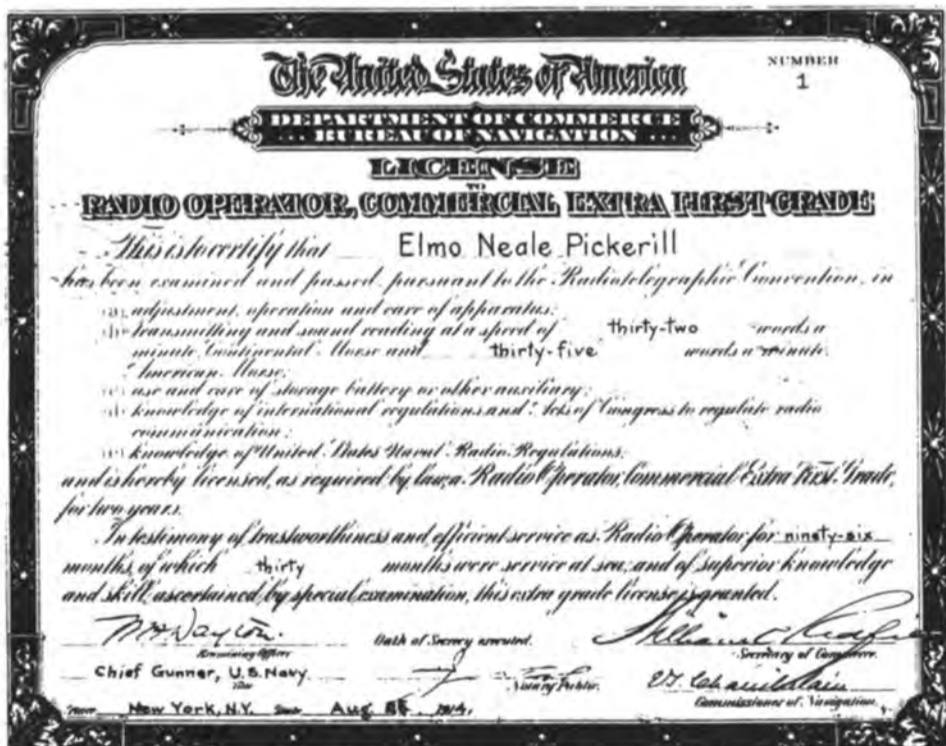 NUMBER
1
The United States of America
DEPARTMENT OF COMMERCE
BUREAU OF NAVIGATION
LICENSE
TO
RADIO OPERATOR, COMMERCIAL EXTRA FIRST GRADE
This is to certify that Elmo Neale Pickerill
has been examined and passed, pursuant to the Radiotelegraphic Convention, in
(a) adjustment, operation and care of apparatus;
(b) transmitting and sound reading at a speed of thirty-two words a
minute, Continental Morse and thirty-five words a minute,
American Morse;
(c) use and care of storage battery or other auxiliary;
(d) knowledge of international regulations and Acts of Congress to regulate radio
communication;
(e) knowledge of United States Naval Radio Regulations;
and is hereby licensed, as required by law, a Radio Operator, Commercial Extra First Grade,
for two years.
In testimony of trustworthiness and efficient service as Radio Operator for ninety-six
months, of which thirty months were service at sea, and of superior knowledge
and skill, ascertained by special examination, this extra grade license is granted.
Oath of Secrecy executed.
Examining Officer
Secretary of Commerce.
Chief Gunner, U.S. Navy
Title
Notary Public.
E.T. Chamberlain
Commissioner of Navigation.
Place New York, N.Y. Date Aug 1914.